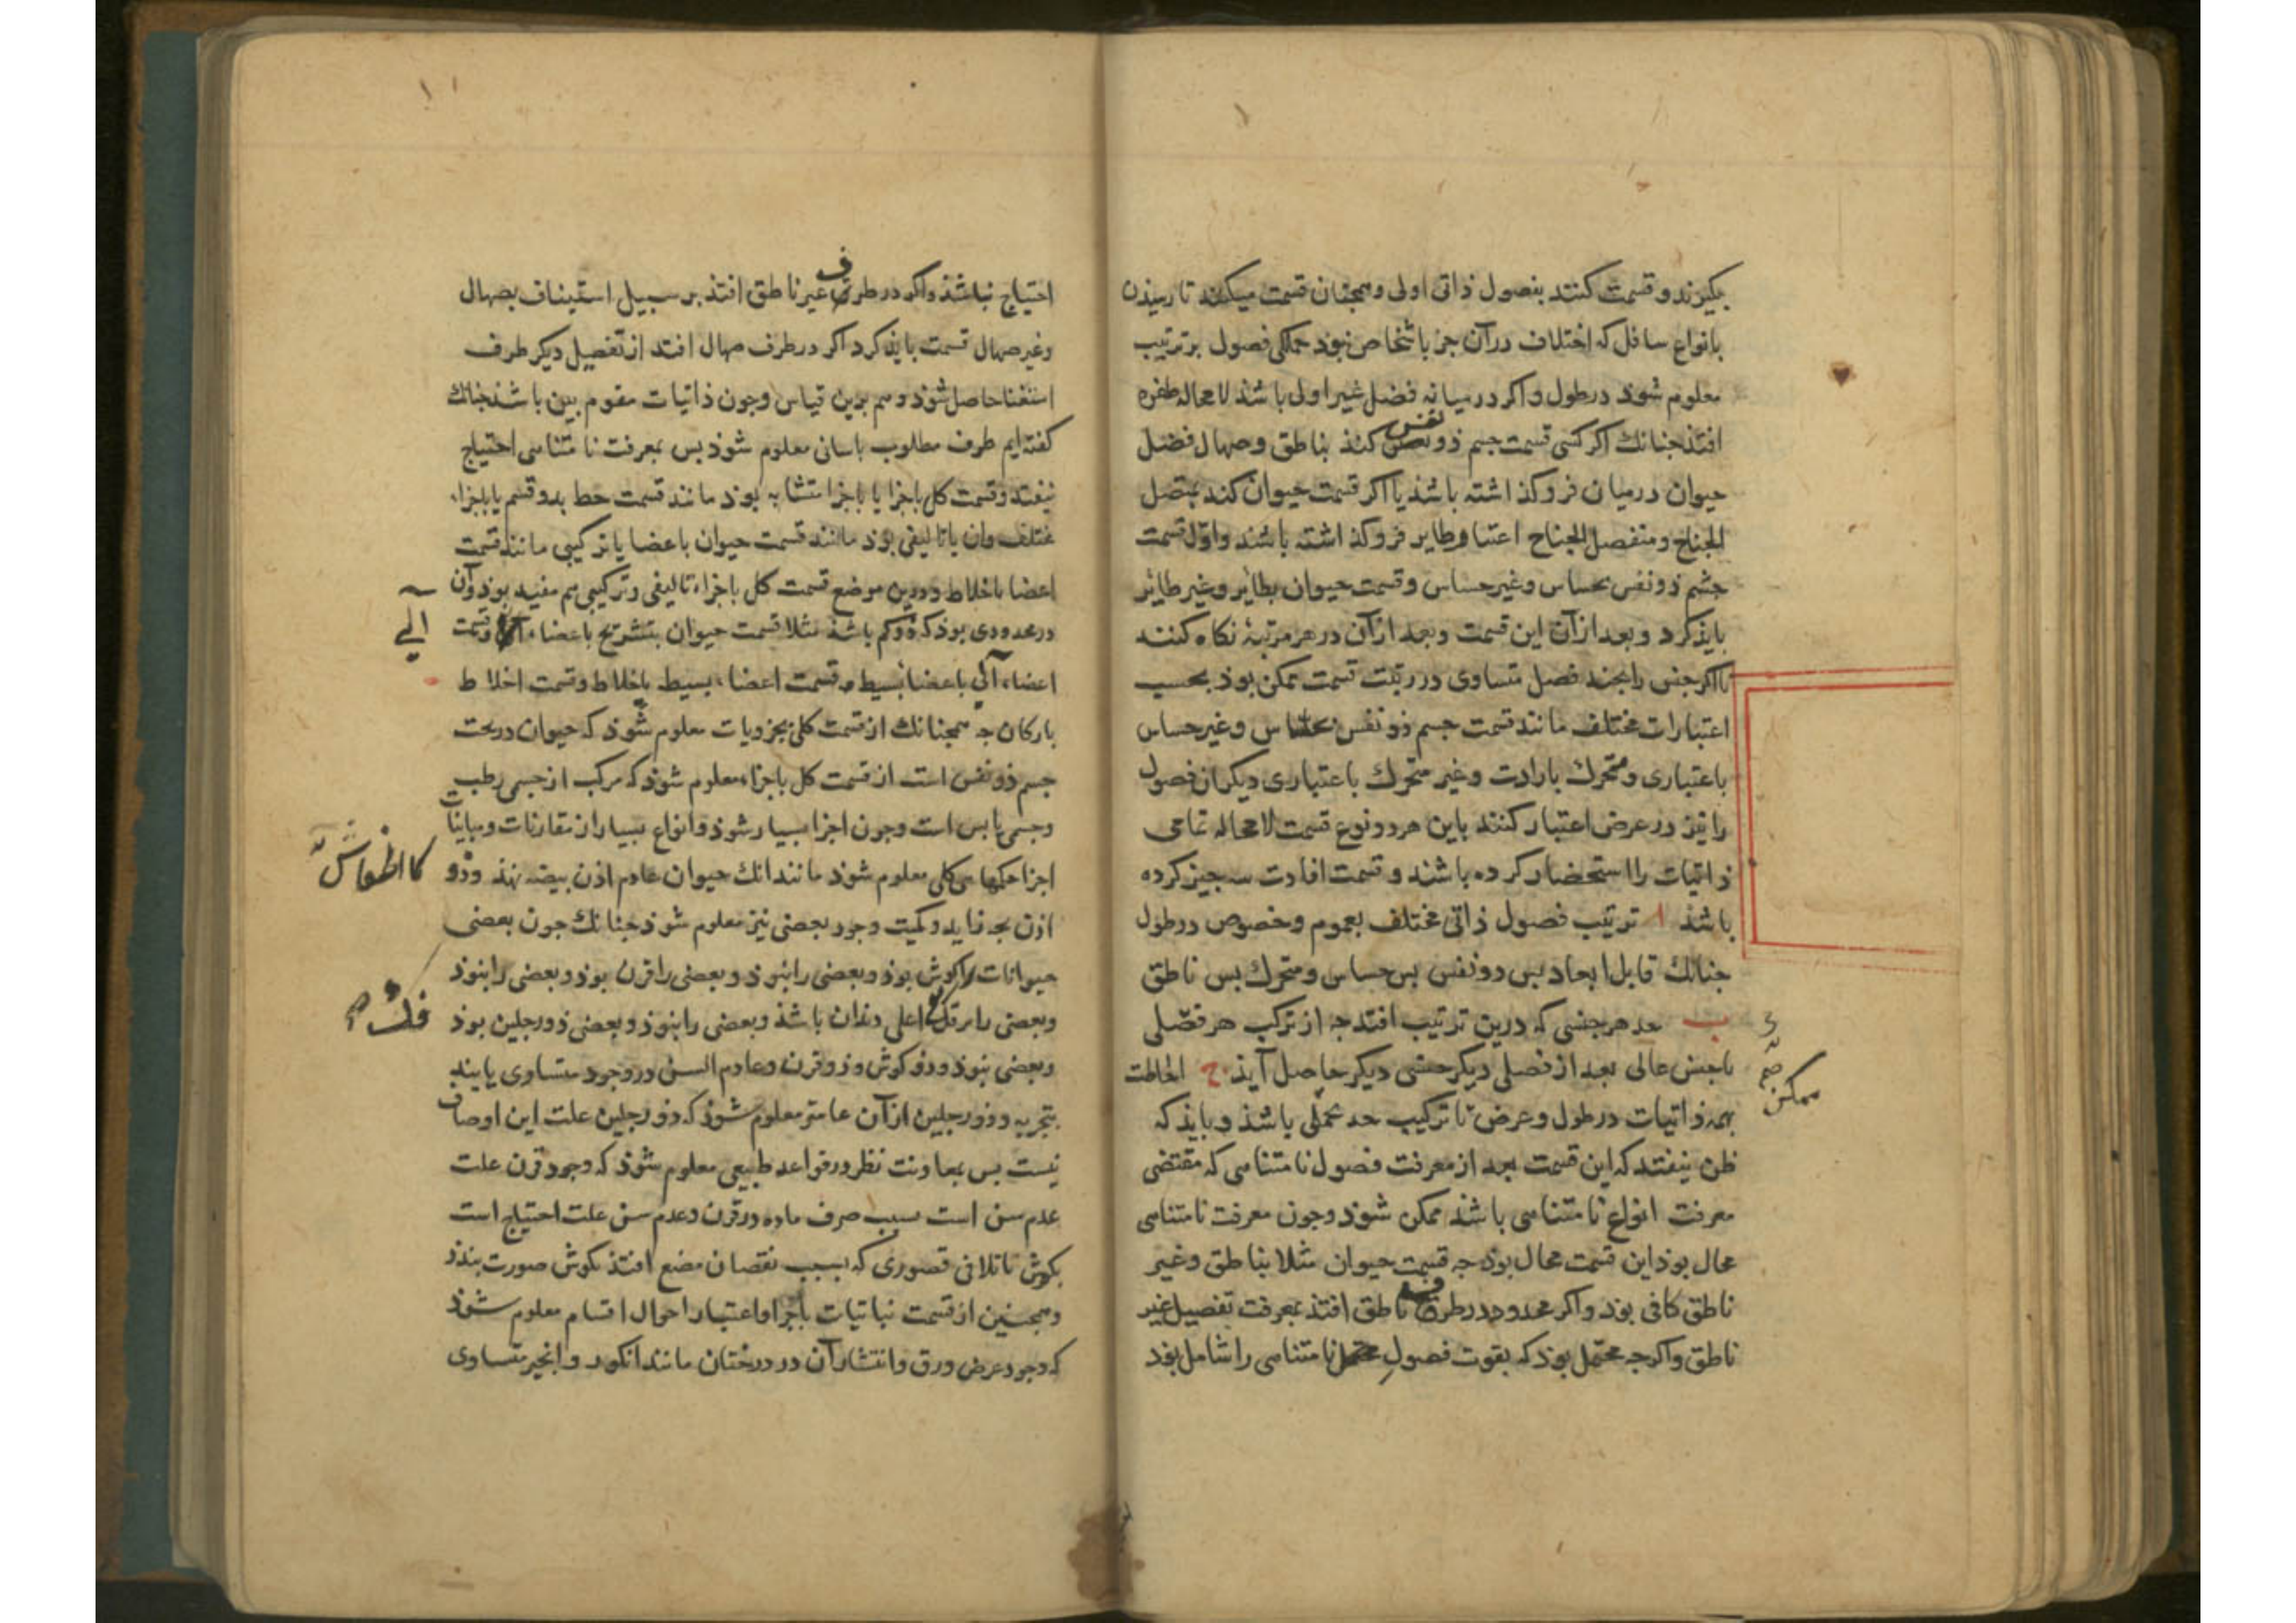 بکیرند و قسمت کنند بفصول ذاتی اولی و همجنان قسمت میکنند تا رسیدن
بانواع سافل که اختلاف در آن جز باشخاص نبوذ جملکی فصول بر ترتیب
معلوم شوذ در طول و اکر در میانه فصل غیر اولی باشذ لا محاله طفره
افتذ جنانك اکر کسی قسمت جسم ذو نفس کنذ بناطق و صهال فصل
حیوان در میان فرو کذاشته باشذ یا اکر قسمت حیوان کند بمتصل
الجناح و منفصل الجناح اعتبار طایر فرو کذاشته باشند و اول قسمت
جسم ذو نفس بحساس و غیر حساس و قسمت حیوان بطایر و غیر طایر
بایذ کرد و بعد از آن این قسمت و بعد از آن در هر مرتبهٔ نکاه کنند
تا اکر جنس را بجند فصل متساوی در رتبت قسمت ممکن بوذ بحسب
اعتبارات مختلف مانند قسمت جسم ذو نفس بحساس و غیر حساس
باعتباری و متحرك بارادت و غیر متحرك باعتباری دیکر ان فصول
را نیز در عرض اعتبار کنند باین هر دو نوع قسمت لا محاله تمامی
ذاتیات را استحضار کرده باشند و قسمت افادت سه جیز کرده
باشذ ا ترتیب فصول ذاتی مختلف بعموم و خصوص در طول
جنانك قابل ابعاد بس ذو نفس بس حساس و متحرك بس ناطق
ب حد هر جنسی که درین ترتیب افتد جه از ترکیب هر فصلی
با جنس عالی بعد از فصلی دیکر جنسی دیکر حاصل آیذ ج احاطت
بهمه ذاتیات در طول و عرض تا ترکیب حد عملی باشذ و بایذ که
ممکن
ظن نیفتد که این قسمت بعد از معرفت فصول نامتناهی که مقتضی
معرفت انواع نامتناهی باشذ ممکن شوذ و جون معرفت نامتناهی
محال بوذ این قسمت محال بوذ جه قسمت حیوان مثلا بناطق و غیر
ناطق کافی بوذ و اکر محدود در طرف ناطق افتذ بمعرفت تفصیل غیر
ناطق و اکرجه محتمل بوذ که بقوت فصول نامتناهی را شامل بوذ
احتیاج نباشذ و اکر در طرف غیر ناطق افتذ بر سبیل استیناف بصهال
وغیر صهال قسمت بایذ کرد اکر در طرف صهال افتد از تفصیل دیکر طرف
استغنا حاصل شوذ و هم برین قیاس و جون ذاتیات مقوم بین باشذ جنانك
کفته ایم طرف مطلوب باسانی معلوم شوذ بس بمعرفت نامتناهی احتیاج
نیفتد و قسمت کل باجزا یا باجزا متشابه بوذ مانند قسمت خط بدو قسم یا باجزاء
مختلف وان یا تالیفی بوذ مانند قسمت حیوان باعضا یا ترکیبی مانند قسمت
اعضا باخلاط و درین موضع قسمت کل باجزاء تالیفی و ترکیبی هم مفید بوذ و آن
در محدودی بوذ که ذو کم باشذ مثلا قسمت حیوان بتشریح باعضاء و قسمت
آلی
اعضاء آلی باعضا بسیط و قسمت اعضاء بسیط باخلاط و قسمت اخلاط
بارکان جه همجنانك از قسمت کلی بجزویات معلوم شوذ که حیوان در تحت
جسم ذو نفس است از قسمت کل باجزاء معلوم شوذ که مرکب از جسمی رطب
وجسمی یابس است وجون اجزا بسیار شوذ و انواع بسیار از مقارنات و مباینات
اجزا حکمهاء کلی معلوم شوذ مانند انك حیوان عادم اذن بیضه نهذ و ذو
اذن بجه زاید و کمیت وجود بعضی نیز معلوم شوذ جنانك جون بعضی
حیوانات را کوش بوذ و بعضی را نبوذ و بعضی را قرن بوذ و بعضی را نبوذ
وبعضی را بر فك اعلی دندان باشذ و بعضی را نبوذ و بعضی ذو رجلین بوذ
فك
وبعضی نبوذ و ذو کوش و ذو قرن و عادم السن در وجود متساوی یابند
بتجربه و ذو رجلین از آن عامتر معلوم شوذ که ذو رجلین علت این اوصاف
نیست بس بمعاونت نظر در قواعد طبیعی معلوم شوذ که وجود قرن علت
عدم سن است بسبب صرف ماده در قرن و عدم سن علت احتیاج است
بکرش تا تلافی قصوری که بسبب نقصان مضغ افتذ بکرش صورت بندد
وهمجنین از قسمت نباتیات باجزا و اعتبار احوال اقسام معلوم شوذ
که وجود عرض ورق و انتشار آن در درختان مانند انکور و انجیر متساوی